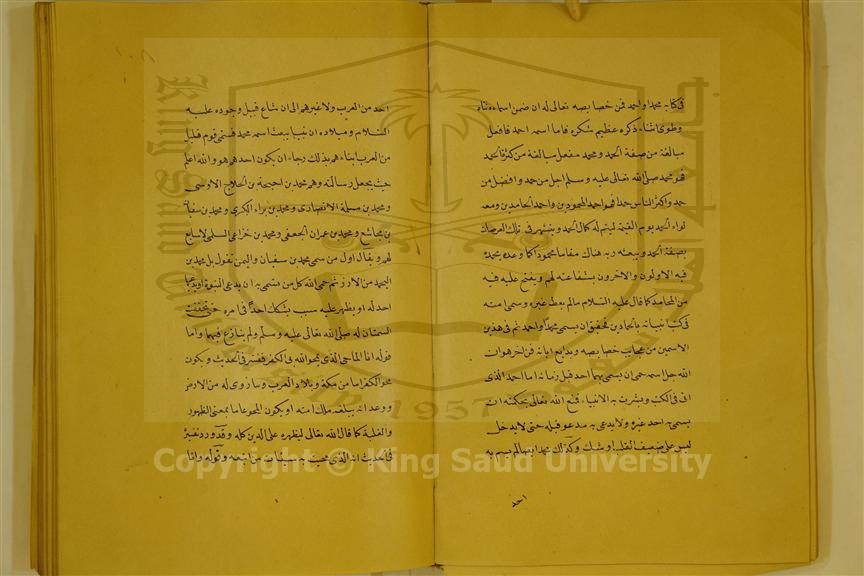 فى كتابه محمدا واحمد فمن خصايصه تعالى له ان ضمن اسماءه ثناه
وطوى اثناء ذكره عظيم شكره فاما اسمه احمد فافعل
مبالغة من صفة الحمد ومحمد مفعل مبالغة من كثرة الحمد
فهو محمد صلى الله تعالى عليه وسلم اجل من حمد وافضل من
حمد واكثر الناس حمدا فهو احمد المحمودين واحمد الحامدين ومعه
لواء الحمد يوم القيمة ليتم له كمال الحمد ويتشهر فى تلك العرصات
بصفة الحمد ويبعثه ربه هناك مقاما محمودا كما وعده يحمده
فيه الاولون والاخرون بشفاعته لهم ويفتح عليه فيه
من المحامد كما قال عليه السلام مالم يعط غيره وسمى امته
فى كتب انبيائه بالحمادين فحقيق ان يسمى محمدا واحمد ثم فى هذين
الاسمين من عجايب خصايصه وبدايع اياته فن اخر هو ان
الله جل اسمه حمى ان يسمى بهما احد قبل زمانه اما احمد الذى
اتى فى الكتب وبشرت به الانبياء فمنع الله تعالى بحكمته ان
يسمى به احد غيره ولا يدعى به مدعو قبله حتى لا يدخل
لبس على ضعيف القلب او شك وكذلك محمد ايضا لم يسم به
احد
احد من العرب ولا غيرهم الى ان شاع قبيل وجوده عليه
السلام وميلاده ان نبيا يبعث اسمه محمد فسمى قوم قليل
من العرب ابناءهم بذلك رجاء ان يكون احدهم هو والله اعلم
حيث يجعل رسالته وهم محمد بن احيحة بن الجلاح الاوسى
ومحمد بن مسلمة الانصارى ومحمد بن براء البكرى ومحمد بن سفيان
بن مجاشع ومحمد بن عمران الجعفى ومحمد بن خزاعى السلمى لا سابع
لهم ويقال اول من سمى محمد بن سفيان واليمن تقول بل محمد بن
اليحمد من الازد ثم حمى الله كل من تسمى به ان يدعى النبوة او يدعيها
احد له او يظهر عليه سبب يشكك احدا فى امره حتى تحققت
السمتان له صلى الله تعالى عليه وسلم ولم ينازع فيهما واما
قوله انا الماحى الذى يمحو الله بى الكفر ففسر فى الحديث ويكون
محو الكفر اما من مكة وبلاد العرب وما زوى له من الارض
ووعد انه يبلغه ملك امته او يكون المحو عاما بمعنى الظهور
والغلبة كما قال الله تعالى ليظهره على الدين كله وقد ورد تفسيره
فى الحديث انه الذى محيت به سيئات من اتبعه وقوله وانا
Copyright © King Saud University
1957